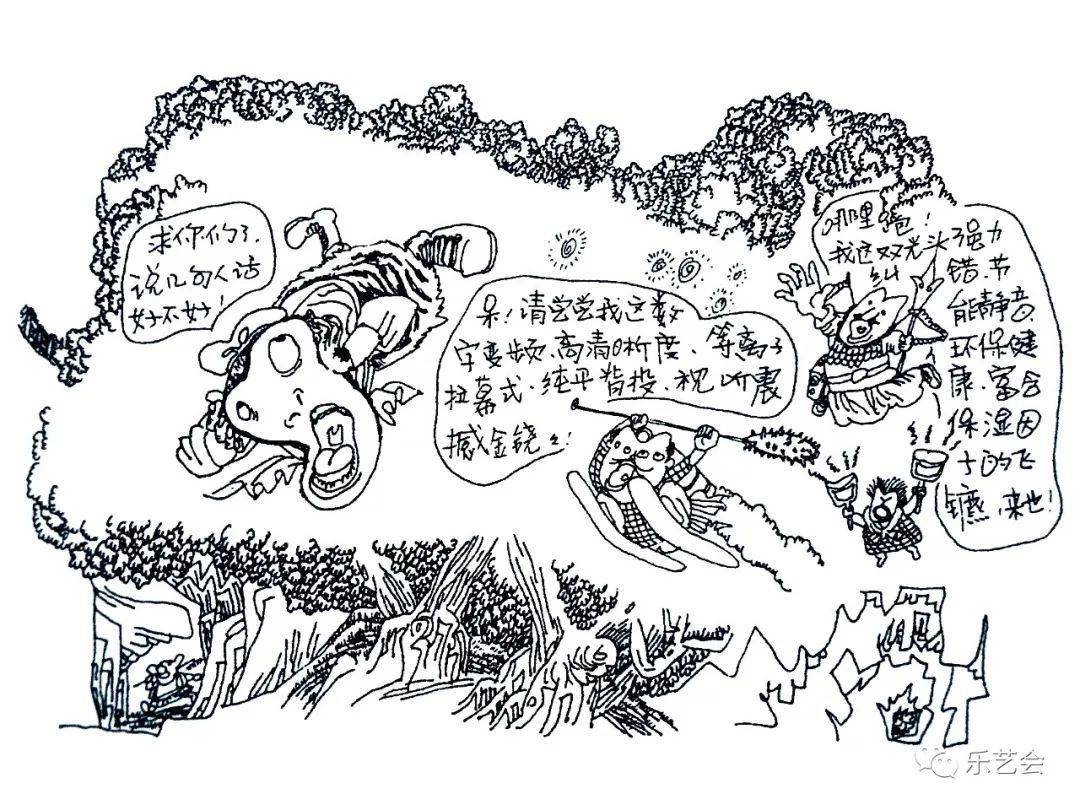 求你们了,
说几句人话
好不好!
呆!请尝尝我这数
字变频.高清晰度、等离子
拉幕式.纯平背投、视听震
撼金铙々!
哪里跑!
我这双光头强力
纠错.节
能静音.
环保健
康.富含
保湿因
子的飞
镖,来也!
乐艺会